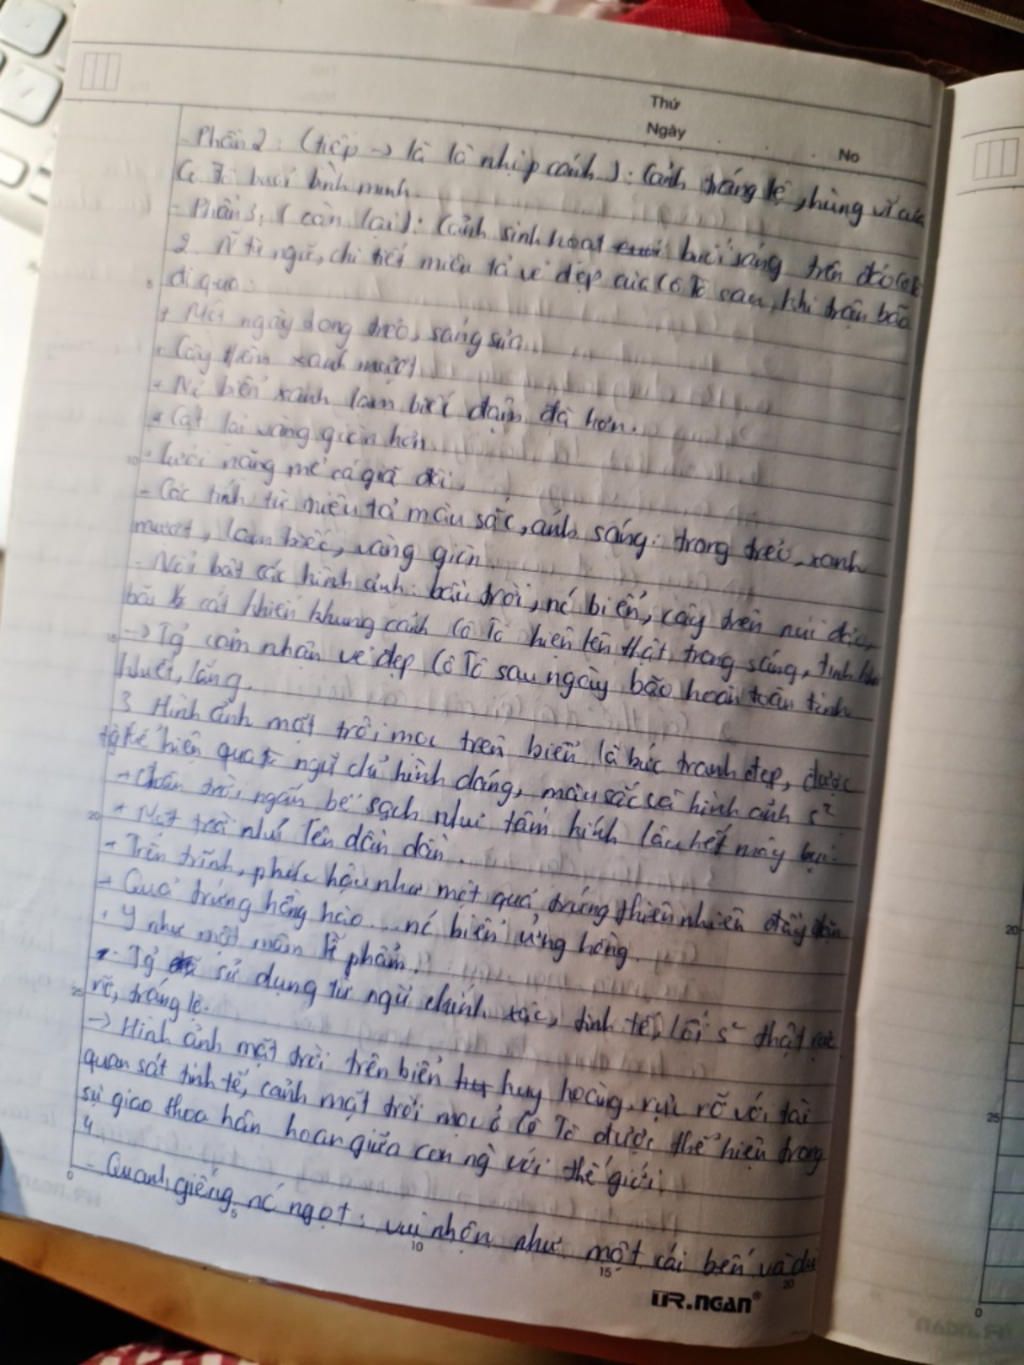 Thứ
Ngày
No
- Phần 2: (tiếp → là là nhịp cánh): Cảnh tráng lệ, hùng vĩ của
Cô Tô buổi bình minh
- Phần 3: (còn lại): Cảnh sinh hoạt buổi sáng trên đảo
2. N từ, ngữ, chi tiết miêu tả vẻ đẹp của Cô Tô sau khi trận bão
đi qua:
+ Một ngày trong trẻo, sáng sủa
+ Cây thêm xanh mượt
+ Nc biển xanh lam biếc đậm đà hơn.
+ Cát lại vàng giòn hơn
+ Lưới nặng mẻ cá giã đôi.
- Các tính từ miêu tả màu sắc, ánh sáng: trong trẻo, xanh
mượt, lam biếc, vàng giòn
- Nổi bật các hình ảnh: bầu trời, nc biển, cây trên núi đảo,
bãi cát khiến khung cảnh Cô Tô hiện lên thật trong sáng, tinh
→ Tg cảm nhận vẻ đẹp Cô Tô sau ngày bão hoàn toàn tinh
khiết, lắng.
3 Hình ảnh mặt trời mọc trên biển là bức tranh đẹp, được
thể hiện qua từ ngữ chỉ hình dáng, màu sắc và hình ảnh s²
+ Chân trời, ngấn bể sạch như tấm kính lau hết mây bụi.
+ Mặt trời nhú lên dần dần.
+ Tròn trĩnh, phúc hậu như một quả trứng thiên nhiên đầy đặn
+ Quả trứng hồng hào... nc biển ửng hồng.
+ Y như một mâm lễ phẩm.
- Tg sử dụng từ ngữ chính xác, tinh tế, lối s² thật rực
rỡ, tráng lệ.
→ Hình ảnh mặt trời trên biển huy hoàng, rực rỡ với tài
quan sát tinh tế, cảnh mặt trời mọc ở Cô Tô được thể hiện trong
sự giao thoa hân hoan giữa con ng với thế giới.
4.
- Quanh giếng nc ngọt: vui nhộn như một cái bến và
TR.NGAN®